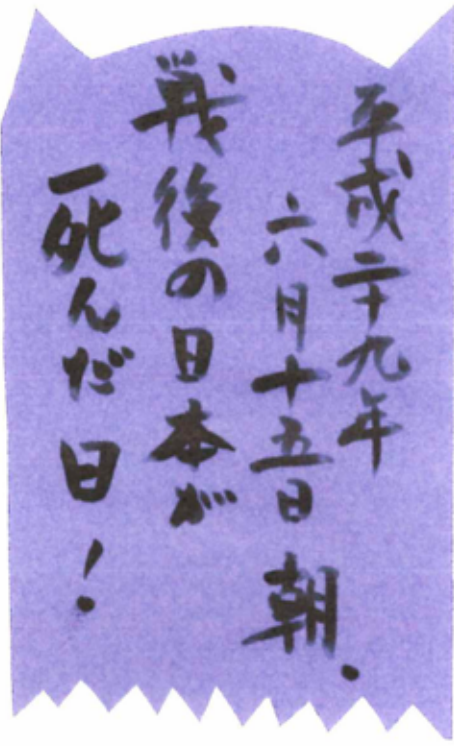 平成二十九年
六月十五日朝.
戦後の日本が
死んだ日!